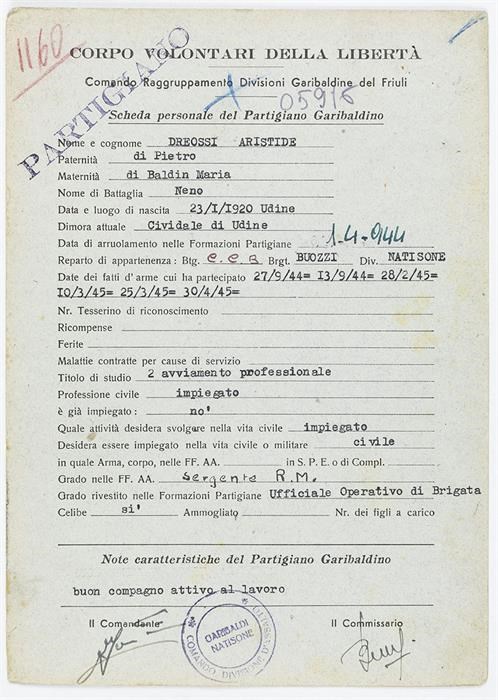 1160
CORPO VOLONTARI DELLA LIBERTÀ
Comando Raggruppamento Divisioni Garibaldine del Friuli
PARTIGIANO
05916
Scheda personale del Partigiano Garibaldino
Nome e cognome DREOSSI ARISTIDE
Paternità di Pietro
Maternità di Baldin Maria
Nome di Battaglia Neno
Data e luogo di nascita 23/I/1920 Udine
Dimora attuale Cividale di Udine
Data di arruolamento nelle Formazioni Partigiane 1-4-944
Reparto di appartenenza: Btg. C.C.B Brgt. BUOZZI Div. NATISONE
Date dei fatti d'arme cui ha partecipato 27/9/44= 13/9/44= 28/2/45=
10/3/45= 25/3/45= 30/4/45=
Nr. Tesserino di riconoscimento
Ricompense
Ferite
Malattie contratte per cause di servizio
Titolo di studio 2 avviamento professionale
Professione civile impiegato
è già impiegato: no'
Quale attività desidera svolgere nella vita civile impiegato
Desidera essere impiegato nella vita civile o militare civile
in quale Arma, corpo, nelle FF. AA. in S. P. E. o di Compl.
Grado nelle FF. AA. sergente R.M.
Grado rivestito nelle Formazioni Partigiane Ufficiale Operativo di Brigata
Celibe si' Ammogliato Nr. dei figli a carico
Note caratteristiche del Partigiano Garibaldino
buon compagno attivo al lavoro
Il Comandante
Il Commissario
GARIBALDI
NATISONE
COMANDO DIVISIONE D'ASSALTO